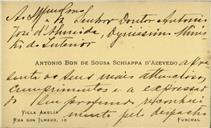 Ao
Senhor Doutor Antonio
José d'Almeida, Dignissimo Minis
tro do Interior
ANTONIO DON DE SOUSA SCHIAPPA D'AZEVEDO, apre
senta os seus mais attenciosos
cumprimentos e a expressão
do seu profundo reconheci
mento pelo despacho
VILLA AMELIA
RUA DOS ILHEUS, 10
FUNCHAL